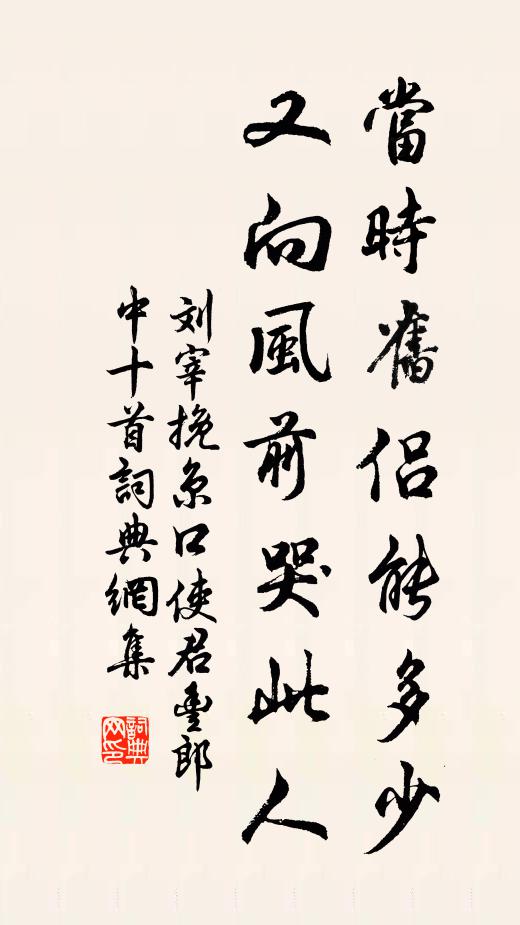 當時舊侣能多少
又向風前哭此人
刘宰挽京口使君豐郎
中十首詞典網集
詞典网印